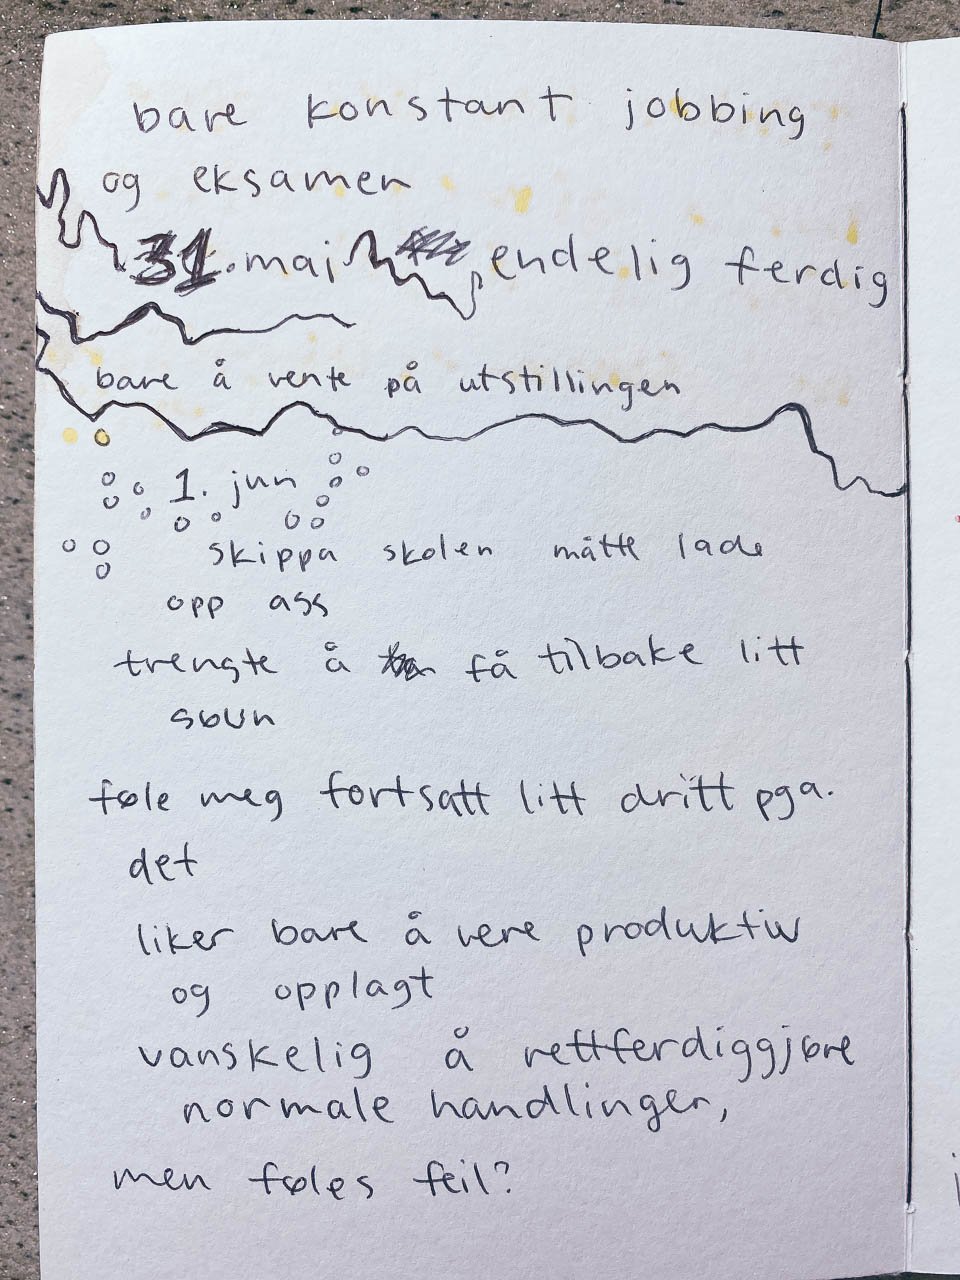 bare konstant jobbing
og eksamen
31. mai, endelig ferdig
bare å vente på utstillingen
1. jun
skippa skolen måtte lade
opp ass
trengte å få tilbake litt
søvn
føle meg fortsatt litt dritt pga.
det
liker bare å vere produktiv
og opplagt
vanskelig å rettferdiggjøre
normale handlinger,
men føles feil?